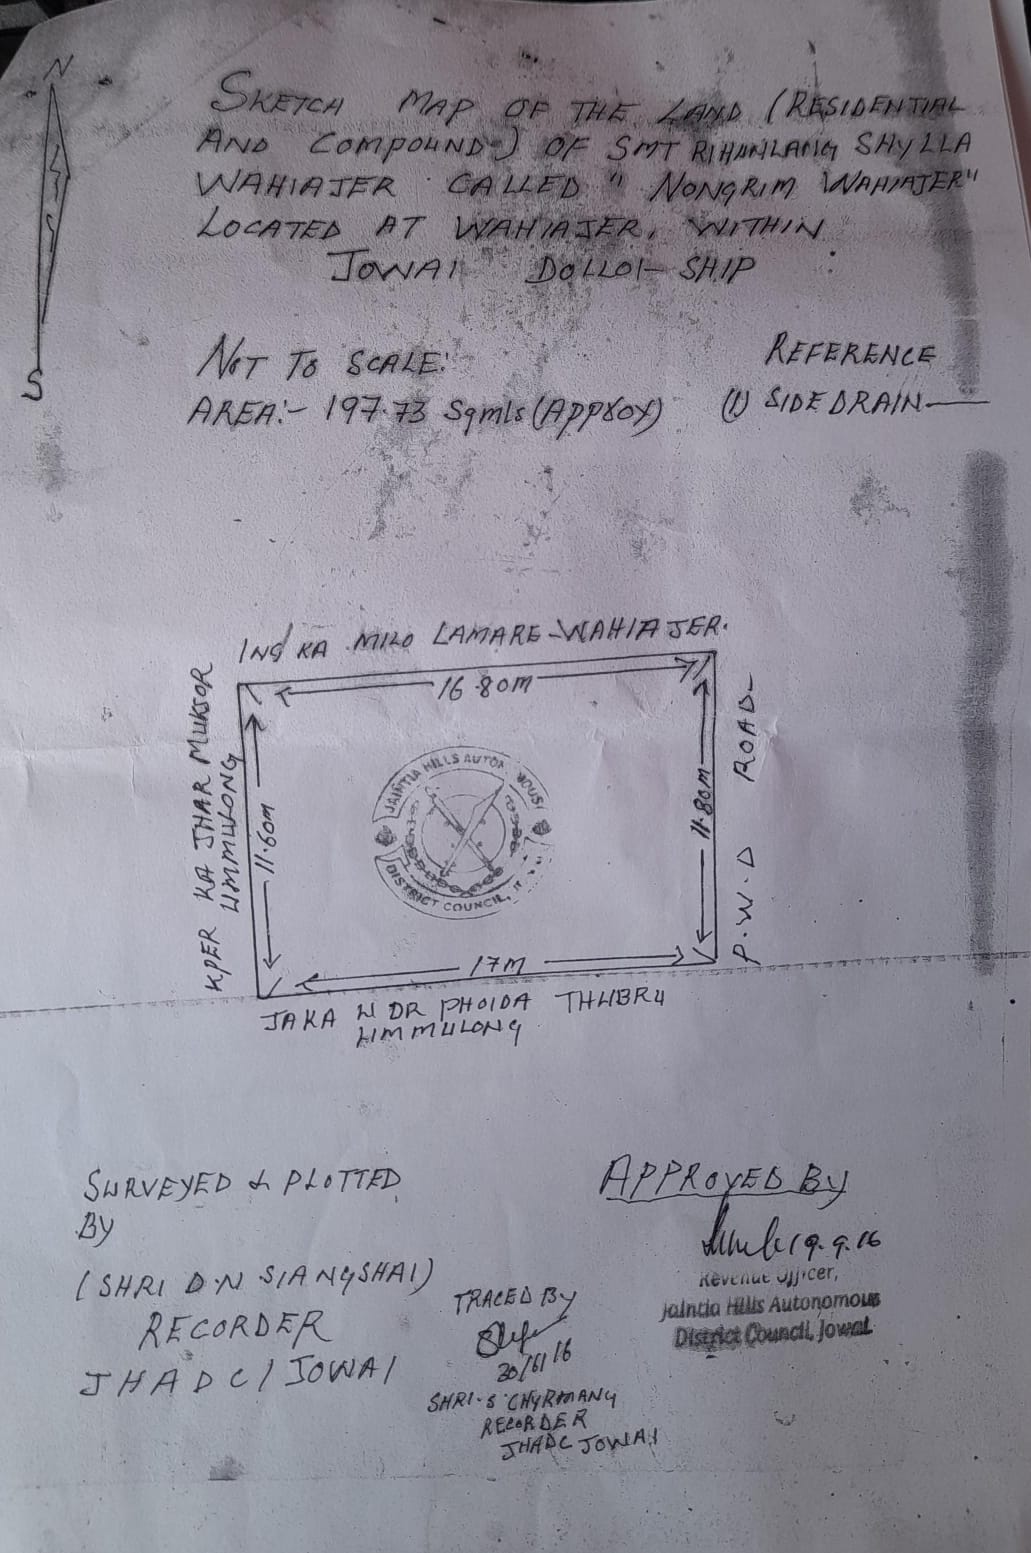 N
S
SKETCH MAP OF THE LAND (RESIDENTIAL
AND COMPOUND) OF SMT RIHUNLANG SHYLLA
WAHIAJER CALLED "NONGRIM WAHIAJER"
LOCATED AT WAHIAJER, WITHIN
JOWAI DOLLOI-SHIP
NOT TO SCALE:
AREA:- 197.73 Sqmls (Approx)
REFERENCE
(1) SIDE DRAIN
ING KA MILO LAMARE-WAHIAJER.
16.80m
KPER KA JHAR MUKSOR
LUMMULONG
11.60m
JAINTIA HILLS AUTONOMOUS
DISTRICT COUNCIL,
11.80m
P.W.D ROAD-
17m
JAKA U DR PHOIDA THUBRU
LUMMULONG
SURVEYED & PLOTTED
BY
(SHRI D.N SIANGSHAI)
RECORDER
JHADC/JOWAI
TRACED BY
30/6/16
SHRI-S CHYRMANG
RECORDER
JHADC JOWAI
APPROVED BY
19.9.16
Revenue Officer,
Jaintia Hills Autonomous
District Council, Jowai